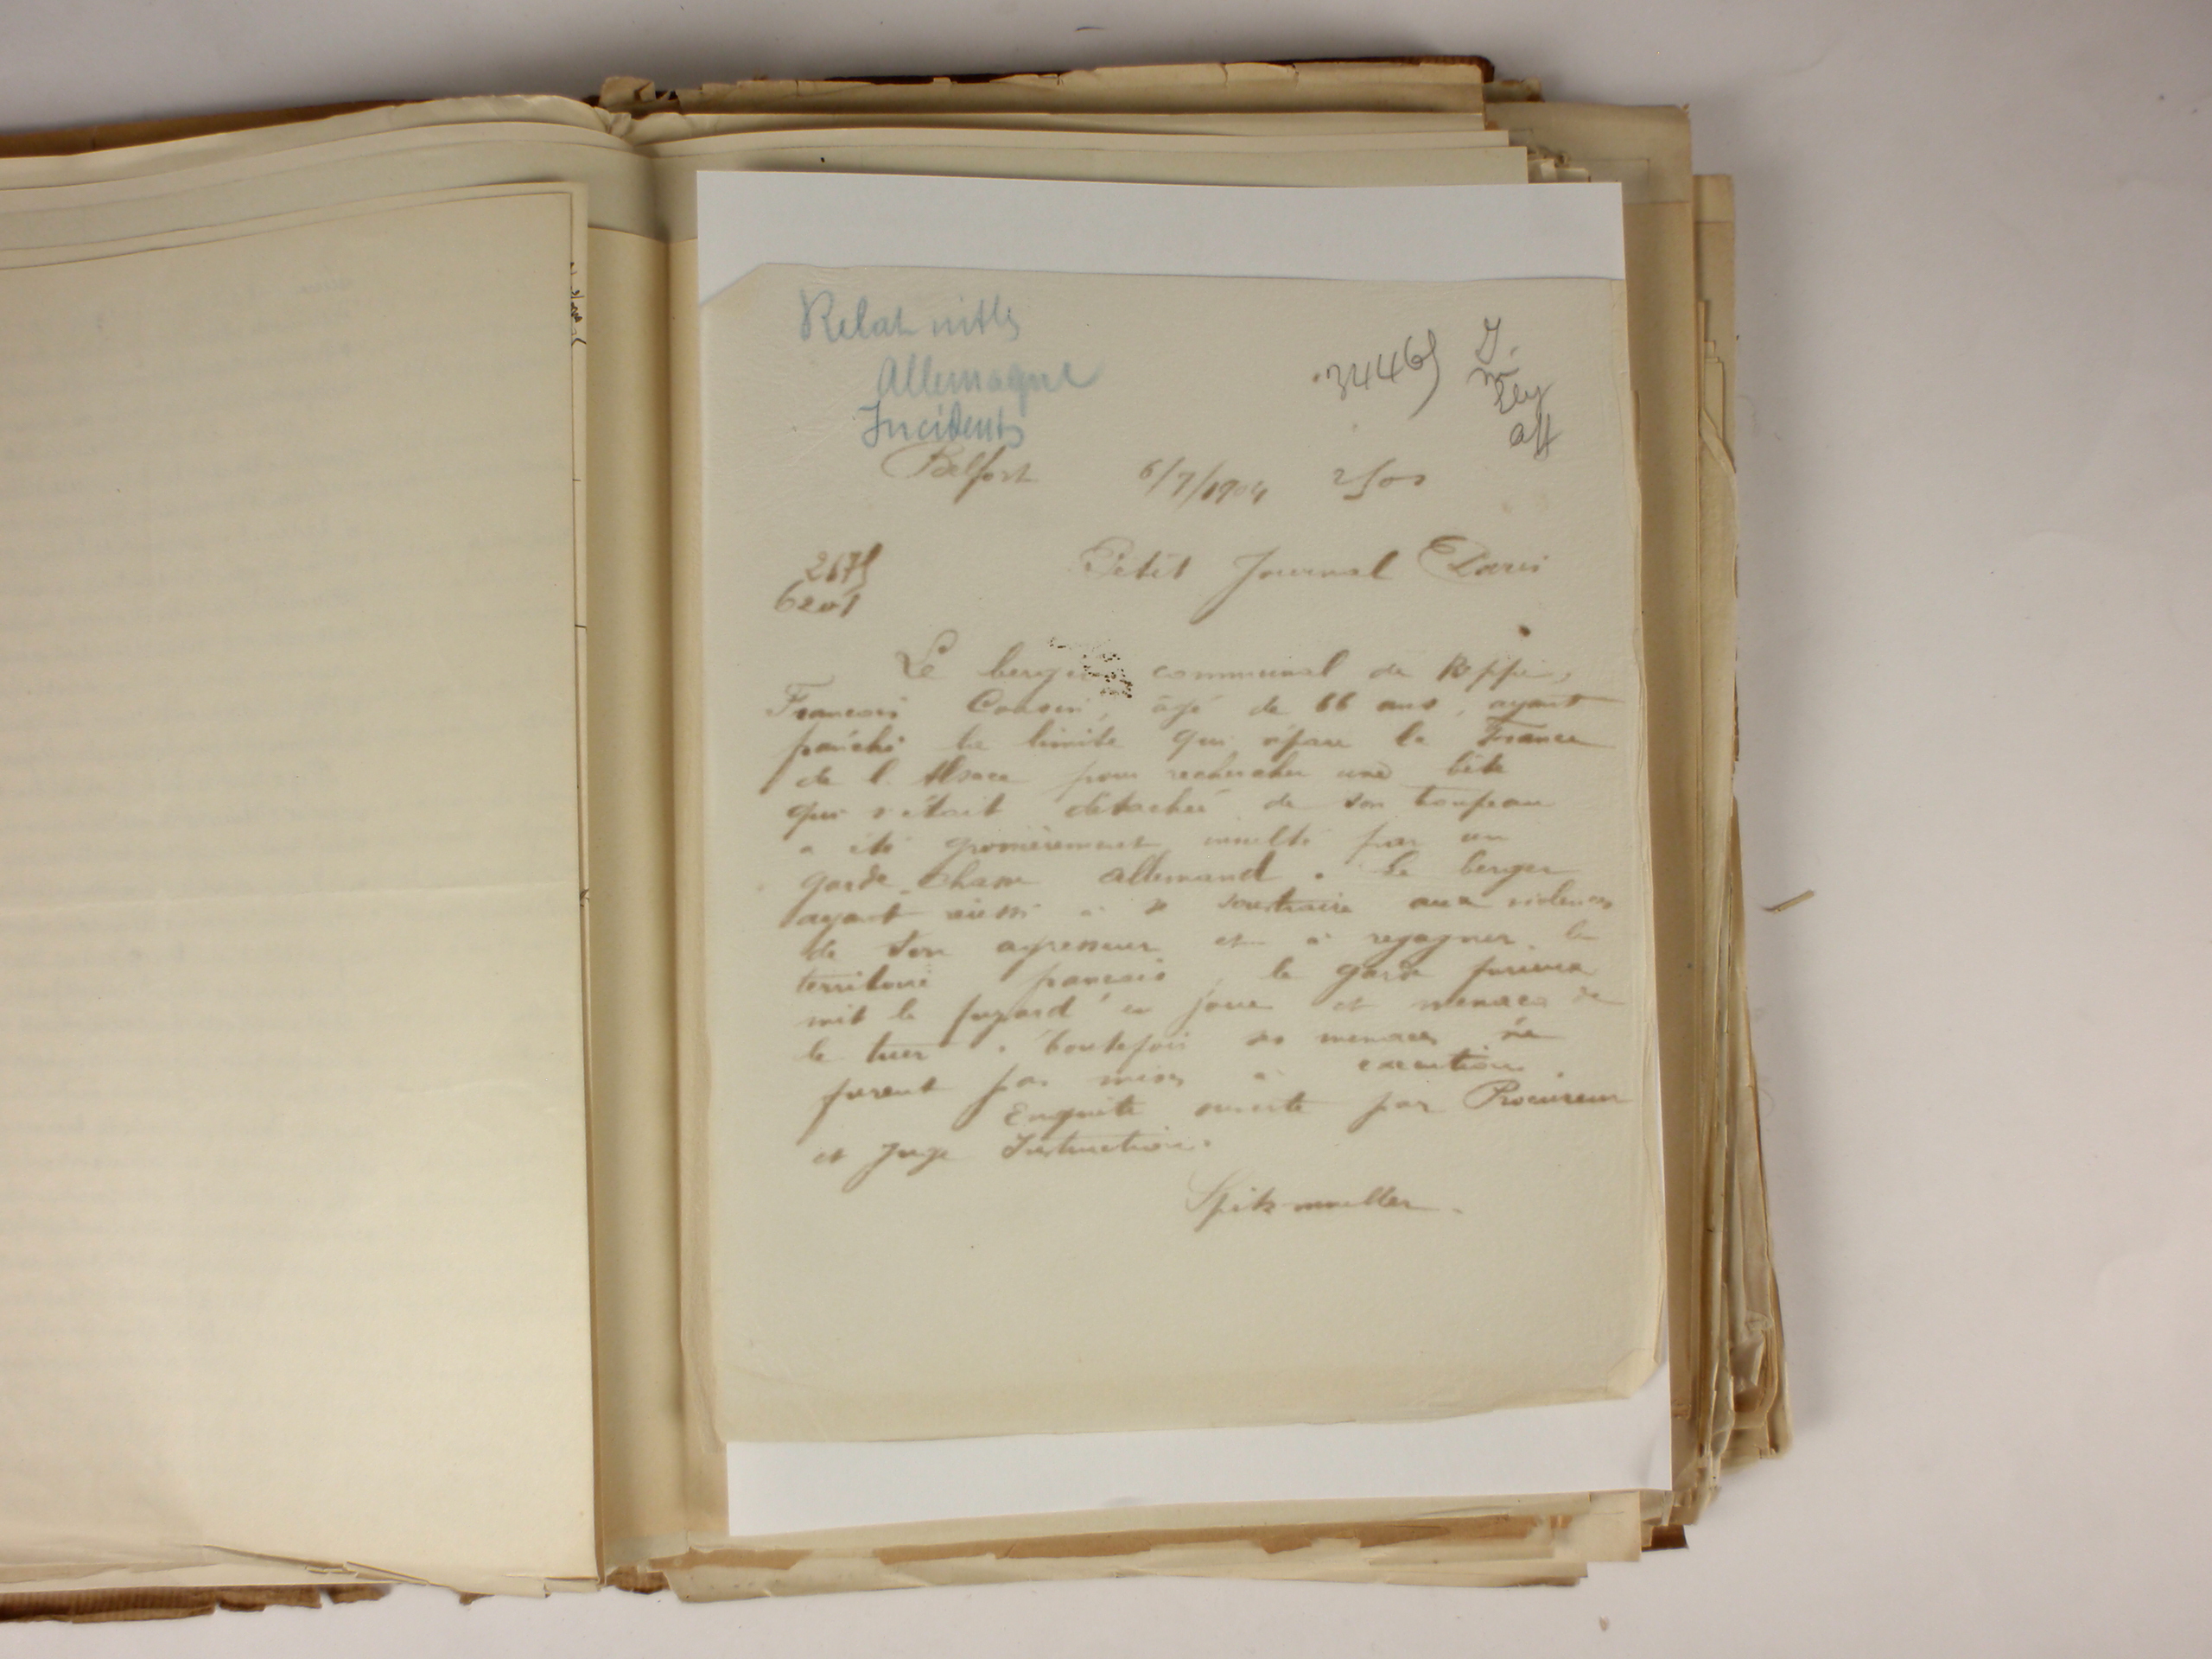 Relat intles
Allemagne
Incidents
34465
Belfort 6/7/1904
2675
6201
Petit Journal Paris
Le berger communal de
François Cousin, âgé de 66 ans, ayant
franchi la limite qui sépare la France
de l'Alsace pour rechercher une bête
qui s'était détachée de son troupeau
a été grossièrement insulté par un
garde-chasse allemand. Le berger
ayant réussi à se soustraire aux violences
de son agresseur et à regagner le
territoire français, le garde furieux
mit le fuyard en joue et menaça de
le tuer. toutefois ses menaces ne
furent pas mises à exécution.
Enquête ouverte par Procureur
et Juge Instruction.
Spitzmuller.